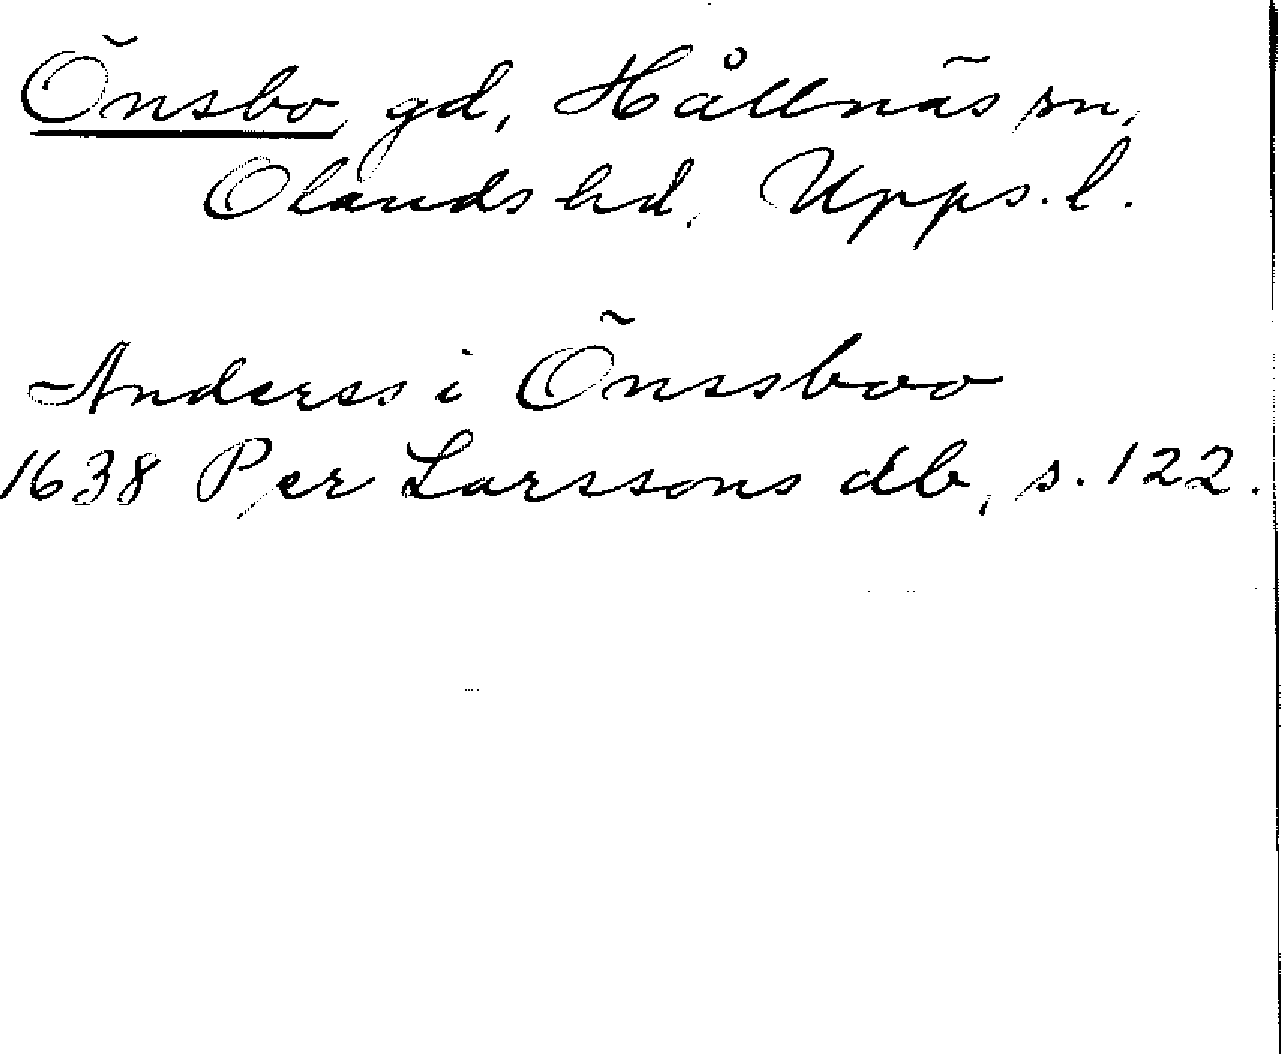 Önsbo, gd, Hållnäs sn,
Olands hd, Upps. l.
Anderss i Önssboo
1638 Per Larssons db, s. 122.